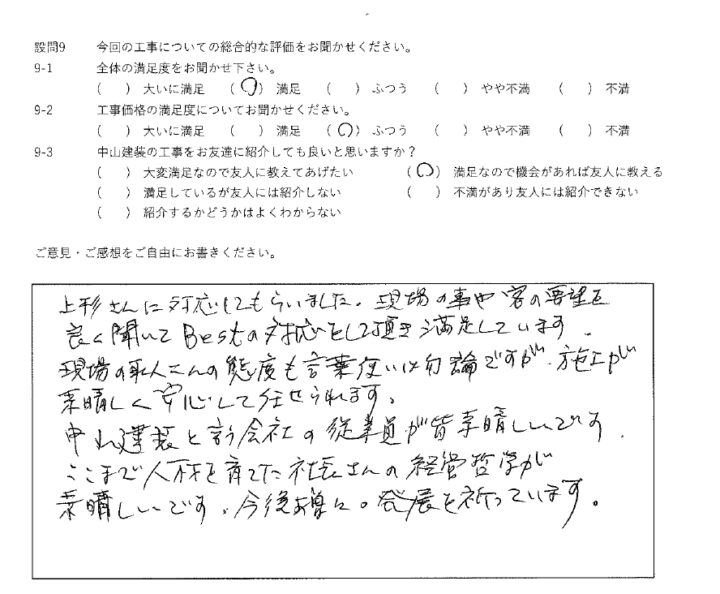 設問9 今回の工事についての総合的な評価をお聞かせください。
9-1 全体の満足度をお聞かせ下さい。
( ) 大いに満足 (○) 満足 ( ) ふつう ( ) やや不満 ( ) 不満
9-2 工事価格の満足度についてお聞かせください。
( ) 大いに満足 ( ) 満足 (○) ふつう ( ) やや不満 ( ) 不満
9-3 中山建装の工事をお友達に紹介しても良いと思いますか？
( ) 大変満足なので友人に教えてあげたい (○) 満足なので機会があれば友人に教える
( ) 満足しているが友人には紹介しない ( ) 不満があり友人には紹介できない
( ) 紹介するかどうかはよくわからない
ご意見・ご感想をご自由にお書きください。
上杉さんに対応してもらいました。現場の事や客の要望を
良く聞いてBestの対応をして頂き満足しています。
現場の職人さんの態度も言葉使いは勿論ですが、施工が
素晴しく安心して任せられます。
中山建装と言う会社の従業員が皆素晴しいです。
ここまで人材を育てた社長さんの経営哲学が
素晴しいです。今後お導の発展を祈っています。